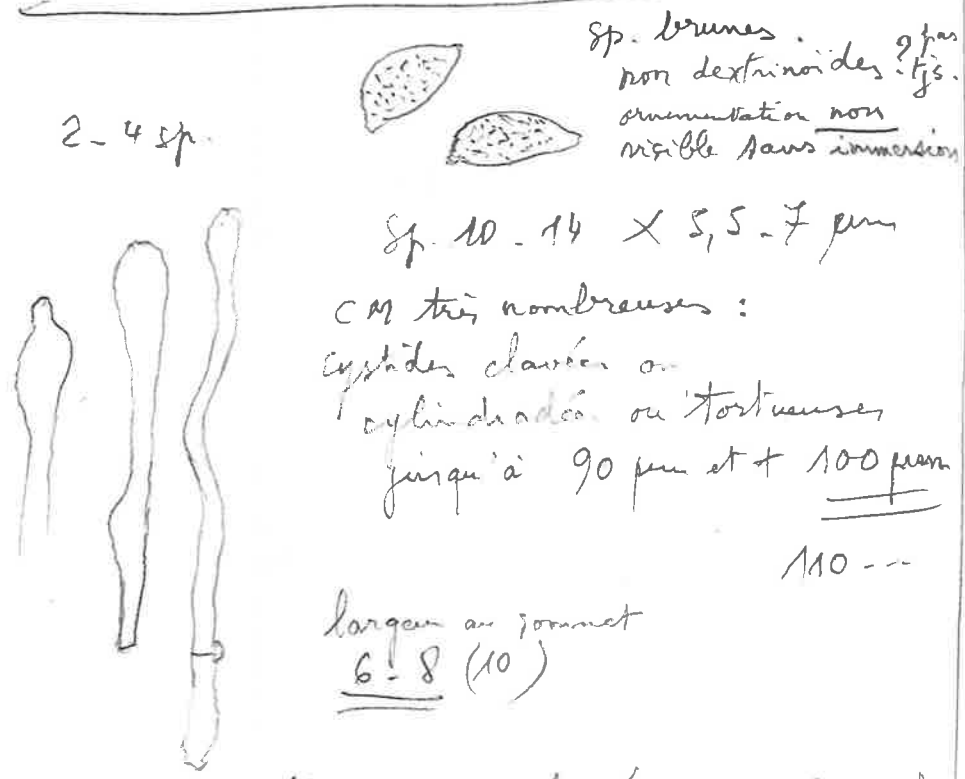 sp. brunes.
non dextrinoïdes ? pas tjs.
ornementation non
visible sans immersion
2-4 sp.
Sp. 10-14 X 5,5-7 µm
CM très nombreuses :
cystides clavées ou
cylindracées ou tortueuses
jusqu'à 90 µm et + 100 µm
110 ---
largeur au sommet
6-8 (10)